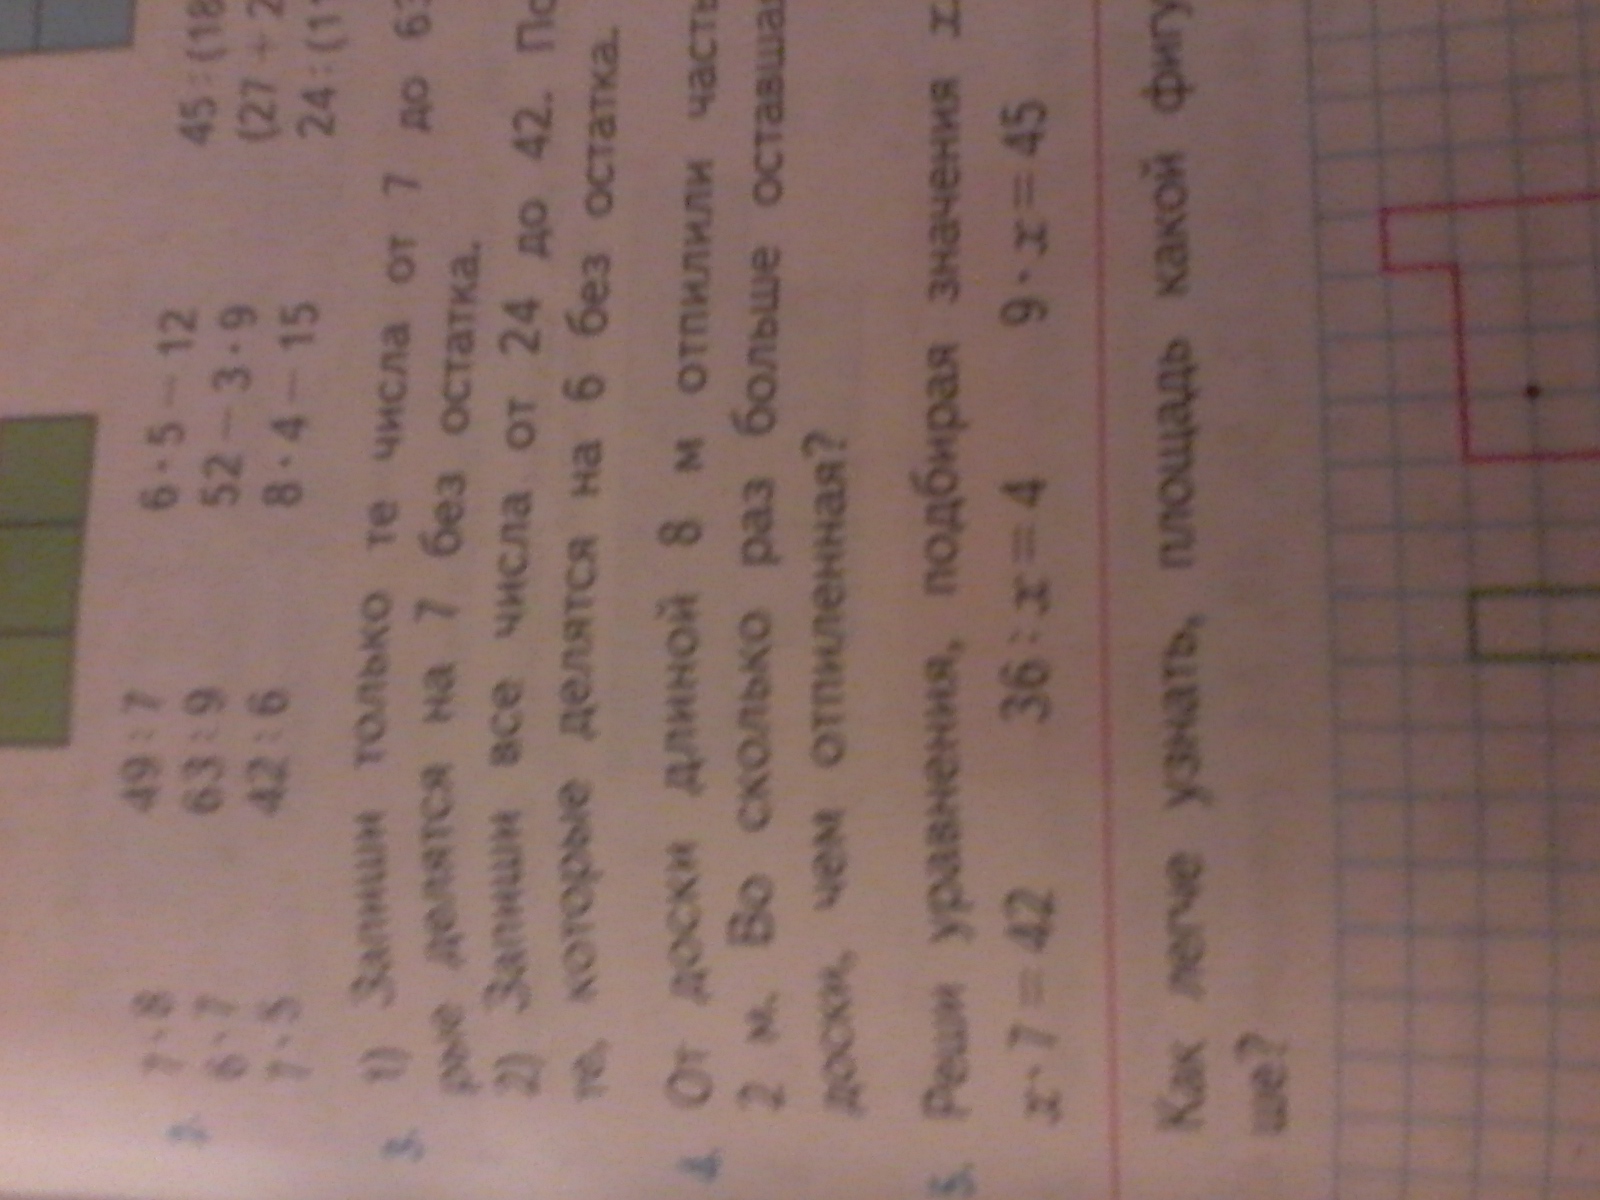 2. 7·8 49:7 6·5−12 45:(18
6·7 63:9 52−3·9 (27+2
7·5 42:6 8·4−15 24:(11
3. 1) Запиши только те числа от 7 до 63
рые делятся на 7 без остатка.
2) Запиши все числа от 24 до 42. По
те, которые делятся на 6 без остатка.
4. От доски длиной 8 м отпилили часть
2 м. Во сколько раз больше оставшая
доски, чем отпиленная?
5. Реши уравнения, подбирая значения x.
x·7=42 36:x=4 9·x=45
Как легче узнать, площадь какой фигу
ше?